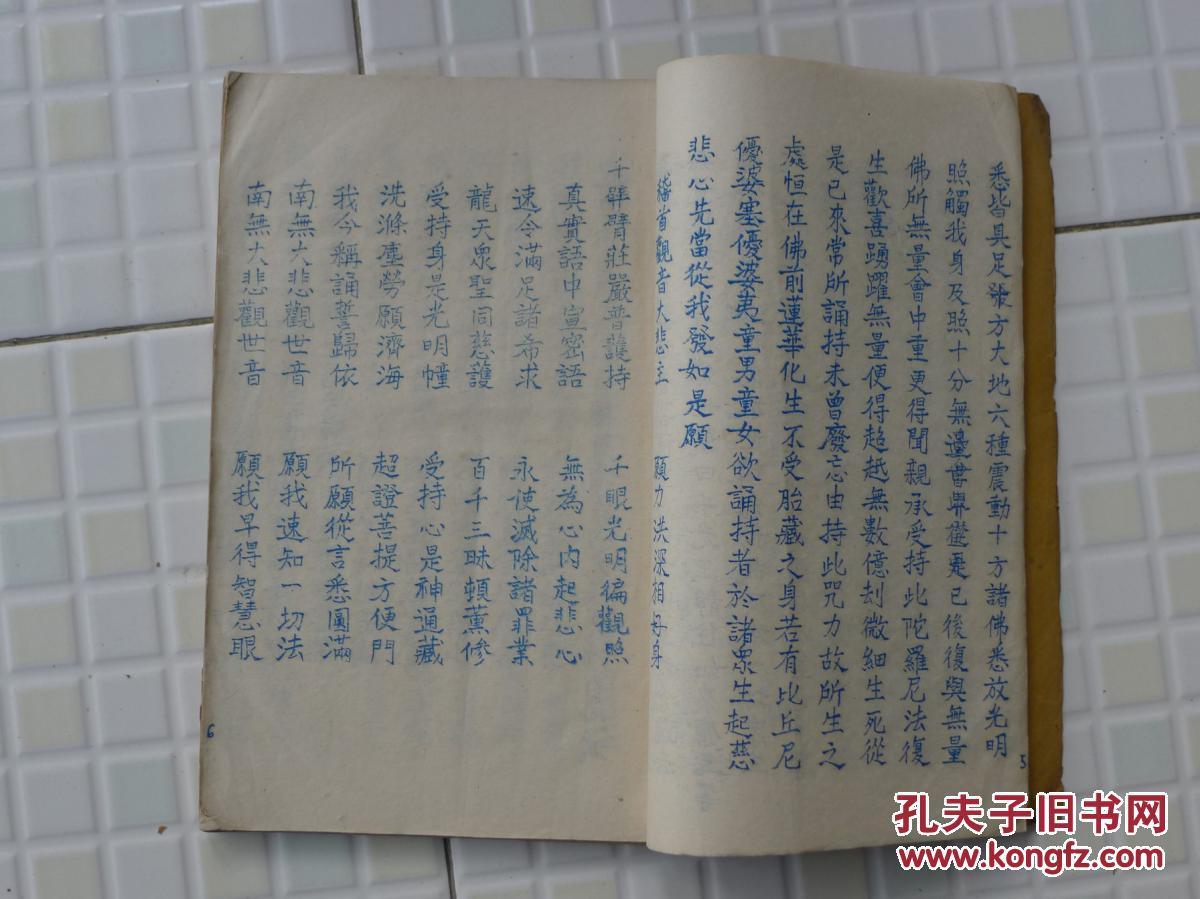 悉皆具足張方大地六種震動十方諸佛悉放光明
照觸我身及照十分無邊世界從是已後復與無量
佛所無量會中重更得聞親承受持此陀羅尼法復
生歡喜踴躍無量便得超越無數億刦微細生死從
是已來常所誦持未曾廢忘由持此咒力故所生之
處恒在佛前蓮華化生不受胎藏之身若有比丘尼
優婆塞優婆夷童男童女欲誦持者於諸衆生起慈
悲心先當從我發如是願
稽首觀音大悲主 願力洪深相好身
千臂莊嚴普護持 千眼光明徧觀照
真實語中宣密語 無為心內起悲心
速令滿足諸希求 永使滅除諸罪業
龍天衆聖同慈護 百千三昧頓薰修
受持身是光明幢 受持心是神通藏
洗滌塵勞願濟海 超證菩提方便門
我今稱誦誓歸依 所願從言悉圓滿
南無大悲觀世音 願我速知一切法
南無大悲觀世音 願我早得智慧眼
5
6
孔夫子旧书网
www.kongfz.com